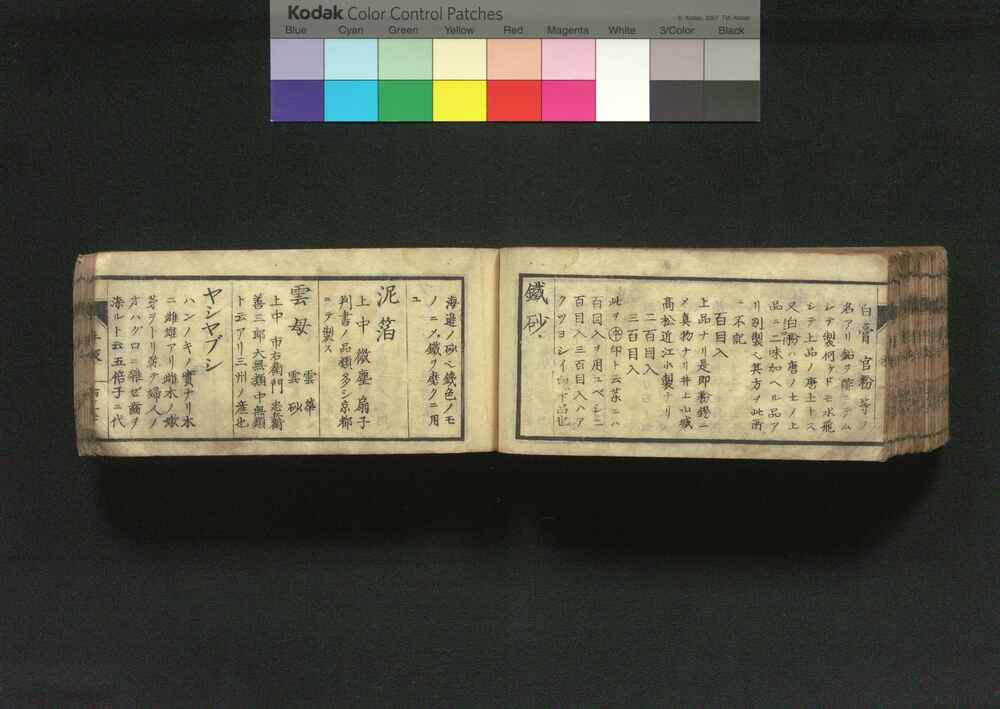 Kodak Color Control Patches
© Kodak, 2007 TM: Kodak
Blue Cyan Green Yellow Red Magenta White 3/Color Black
白膏 官粉等ノ
名アリ鉛ヲ
レテ製何ケドモ水飛
シテ上品ノ唐土トス
又白粉ハ唐ノ土ノ上
品ニ二味加ヘル品ア
リ別製ス其方ヲ此所
ニ不記
百目入
上品ナリ是即粉錫ニ
メ真物ナリ井上山城
高松近江小製ナリ
二百目入
三百目入
此ヲ㊉印ト云茶ニハ
百目入ヲ用ユベシ二
百目入三百目入ハア
クツヨシイ
鐵砂
海邊ノ砂ニ鐵色ノモ
ノニノ鐵ヲ磨クニ用
ユ
泥箔
上中 微塵 扇子
判書ノ品類多シ京都
ニテ製ス
雲母 雲華 雲砂
上中 市右衛門 忠衛
善三郎 大無類中無類
ト云アリ三州ノ産也
ヤシヤブシ
ハンノキノ實ナリ木
ニ雌雄アリ雌木ノ嫩
芽ヲトリ葯ヲ婦人ノ
オハグロニ雑ゼ商ヲ
海ルト云五倍子ニ代